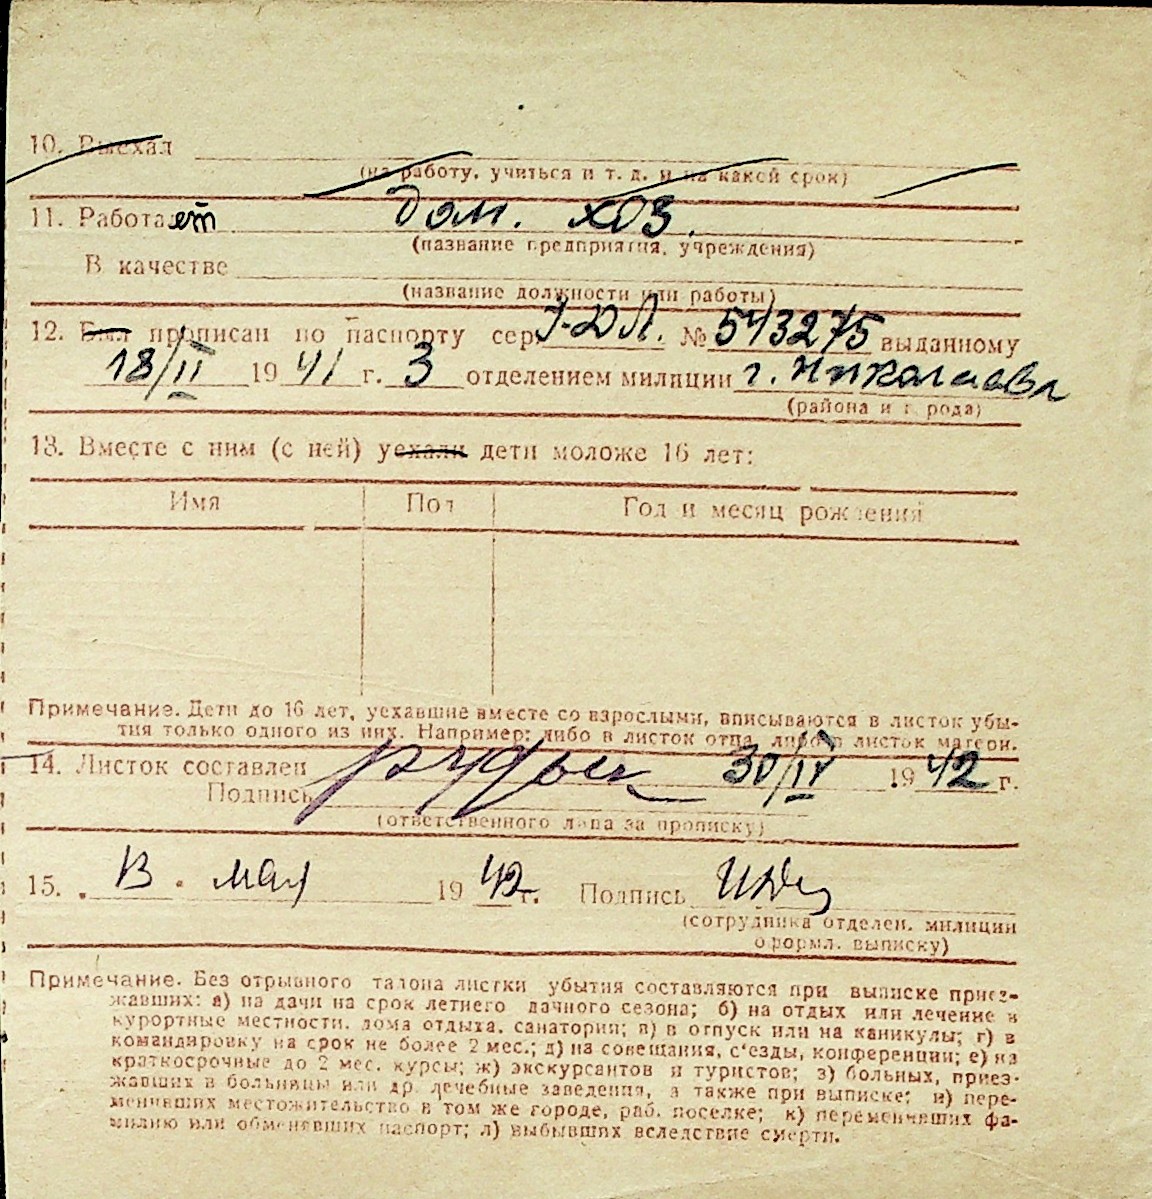 10. Выехал
(на работу, учиться и т. д. и на какой срок)
11. Работает дом. хоз.
(название предприятия, учреждения)
В качестве
(название должности или работы)
12. Был прописан по паспорту сер. I-ДЛ. № 543275 выданному
18/II 1941 г. 3 отделением милиции г. Николаева
(района и города)
13. Вместе с ним (с ней) уехали дети моложе 16 лет:
Имя Пол Год и месяц рождения
Примечание. Дети до 16 лет, уехавшие вместе со взрослыми, вписываются в листок убы-
тия только одного из них. Например: либо в листок отца, либо в листок матери.
14. Листок составлен 30/IV 1942 г.
Подпись
(ответственного лица за прописку)
15. мая 1942 г. Подпись
(сотрудника отделен. милиции
оформл. выписку)
Примечание. Без отрывного талона листки убытия составляются при выписке приез-
жавших: а) на дачи на срок летнего дачного сезона; б) на отдых или лечение в
курортные местности, дома отдыха, санатории; в) в отпуск или на каникулы; г) в
командировку на срок не более 2 мес.; д) на совещания, с'езды, конференции; е) на
краткосрочные до 2 мес. курсы; ж) экскурсантов и туристов; з) больных, приез-
жавших в больницы или др. лечебные заведения, а также при выписке; и) пере-
менивших местожительство в том же городе, раб. поселке; к) переменивших фа-
милию или обменявших паспорт; л) выбывших вследствие смерти.